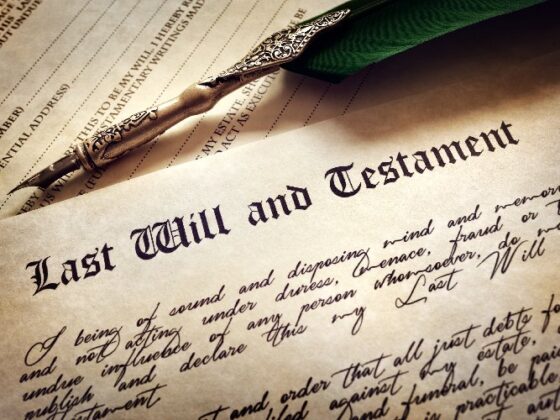 THIS TO BE MY WILL, I HEREBY R
TAMENTARY WRITINGS MADE
MBER)
ENTIAL ADDRESS)
MY ESTATE,
ACT AS EXECU
Last Will and Testament
I being of sound and disposing mind and memor
and not acting under duress, menace, fraud or
undue influence of any person whomsoever, do
publish and declare this my Last Will
Testament
order that all just debts fo
against my estate,
and funeral, be pai
practicable